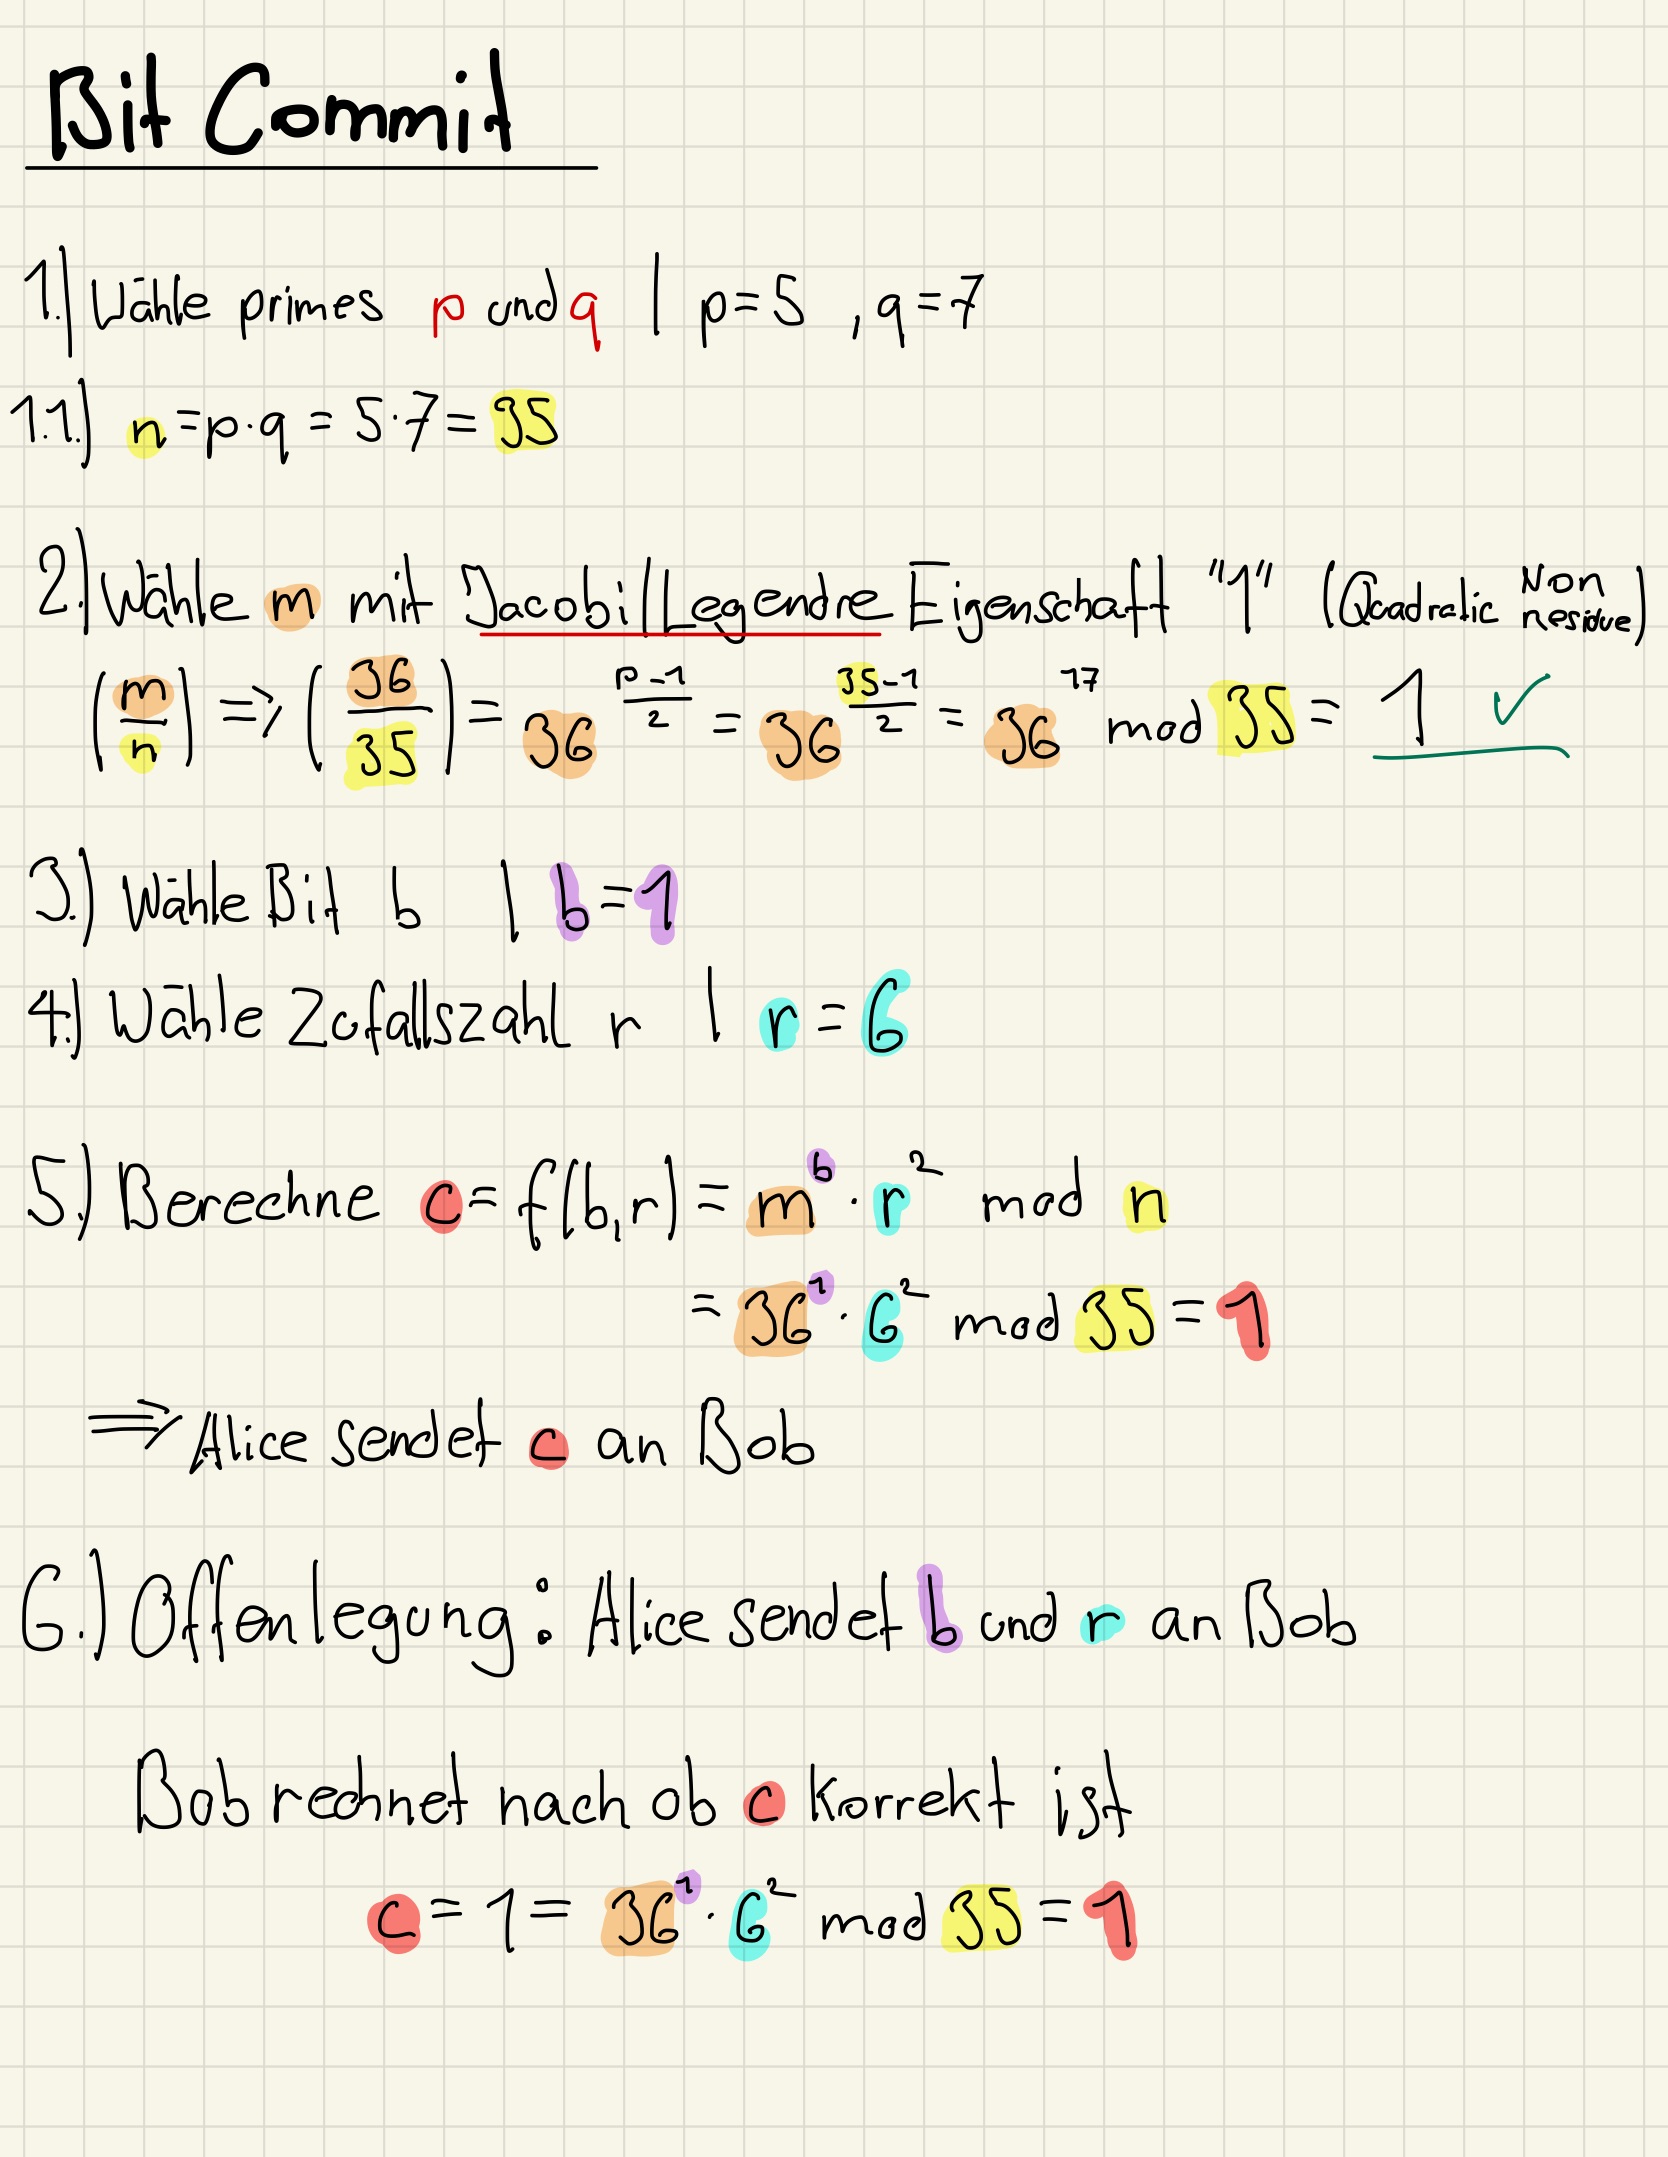 Bit Commit
1.) Wähle primes p und q | p=5 , q=7
1.1.) n=p·q = 5·7= 35
2.) Wähle m mit Jacobi/Legendre Eigenschaft "1" (Quadratic Non residue)
(m/n) => (36/35) = 36^((p-1)/2) = 36^((35-1)/2) = 36^17 mod 35 = 1 ✓
3.) Wähle Bit b | b=1
4.) Wähle Zufallszahl r | r=6
5.) Berechne c= f(b,r) = m^b · r^2 mod n
= 36^1 · 6^2 mod 35 = 1
=> Alice sendet c an Bob
6.) Offenlegung: Alice sendet b und r an Bob
Bob rechnet nach ob c korrekt ist
c = 1 = 36^1 · 6^2 mod 35 = 1